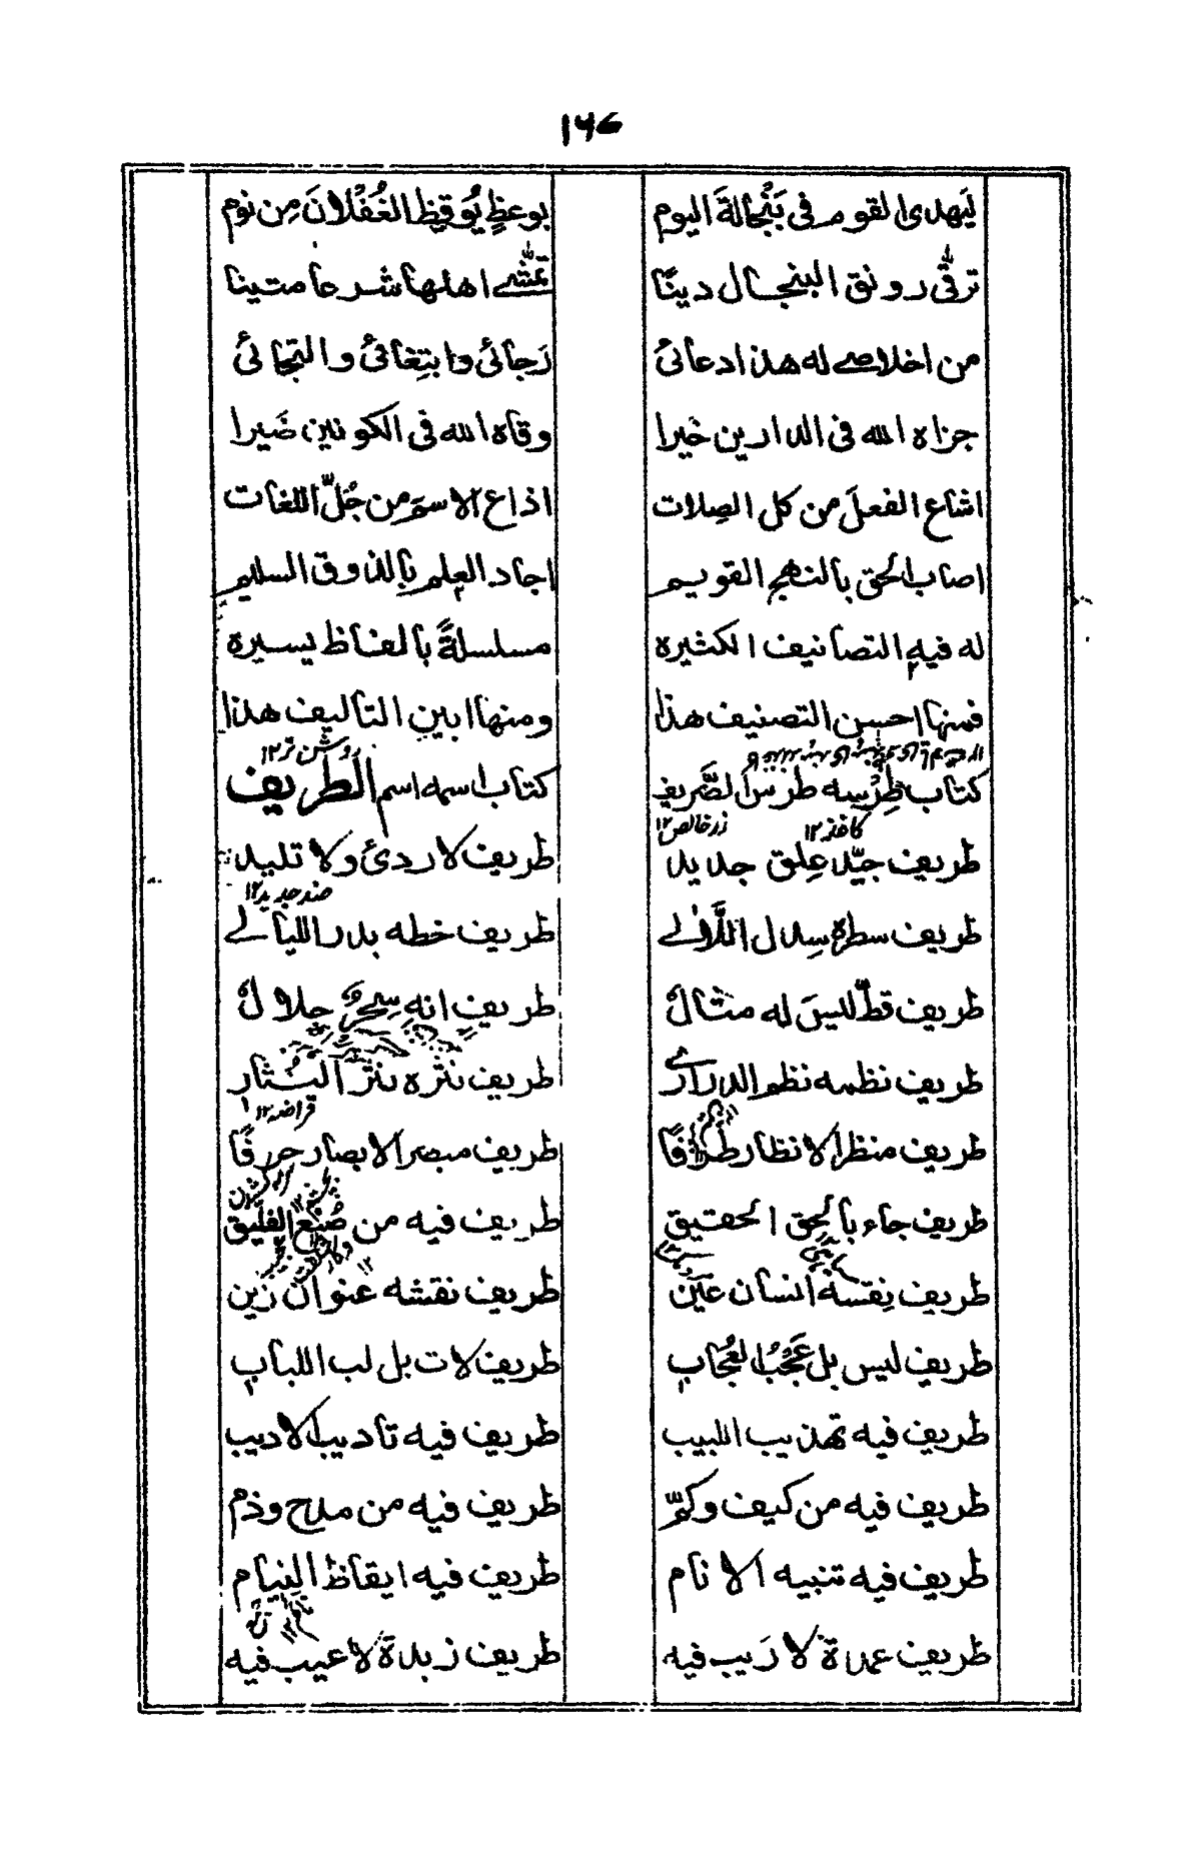 ۱۴۶
لَيَهدى القوم فى بَنْجالةَ اليوم
بوعظٍ يُوقِيظ الغُفْلانَ مِن نوم
ترقّى رونق البنجال دينًا
تمشّے اهلها شرحا متينا
من اخلاصے له هذا دعائئ
رَجائئ وابتِغائئ والتجائئ
جزاه الله فى الدارين خيرا
وقاه الله فى الكونين ضَيرا
اشاع الفعلَ من كل الصِلات
اذاع الاسمَ من جُلّ اللغات
اصاب الحق بالنهج القويم
اجاد العلم بالذوق السليم
له فيه التصانيف الكثيره
مسلسلةً بالفاظ يسيره
فمنها احسن التصنيف هذا
ومنها ابين التاليف هذا
روشن تر۱۲
كتاب طِرْسه طرس الضَّريف
كتاب اسمه اسم الطريف
كاغذ۱۲
زر خالص۱۲
طريف جيّد عِلق جديد
طريف لا ردئ ولا تليد
ضد جديد۱۲
طريف سطره سِدال اللَّاٰلے
طريف خطه بدر الليالے
طريف قطّ ليسَ له مثال
طريف انه سِحرٌ حلال
طريف نظمه نظم الدرارے
طريف نثره نثر النثار
قراضه۱۲
طريف منظر الانظار طرفًا
طريف مبصر الابصار حرفًا
طريف جاء بالحق الحقيق
طريف فيه من صُنع الفليق
طريف نِقسه انسان عَين
طريف نقشه عنوان زين
طريف ليس بل عَجْبُ العُجاب
طريف لات بل لب اللباب
طريف فيه تهذيب اللبيب
طريف فيه تاديب الاديب
طريف فيه من كيف وكمّ
طريف فيه من مدح وذم
طريف فيه تنبيه الانام
طريف فيه ايقاظ النيام
طريف عمدة لا رَيب فيه
طريف زبدة لا عيب فيه